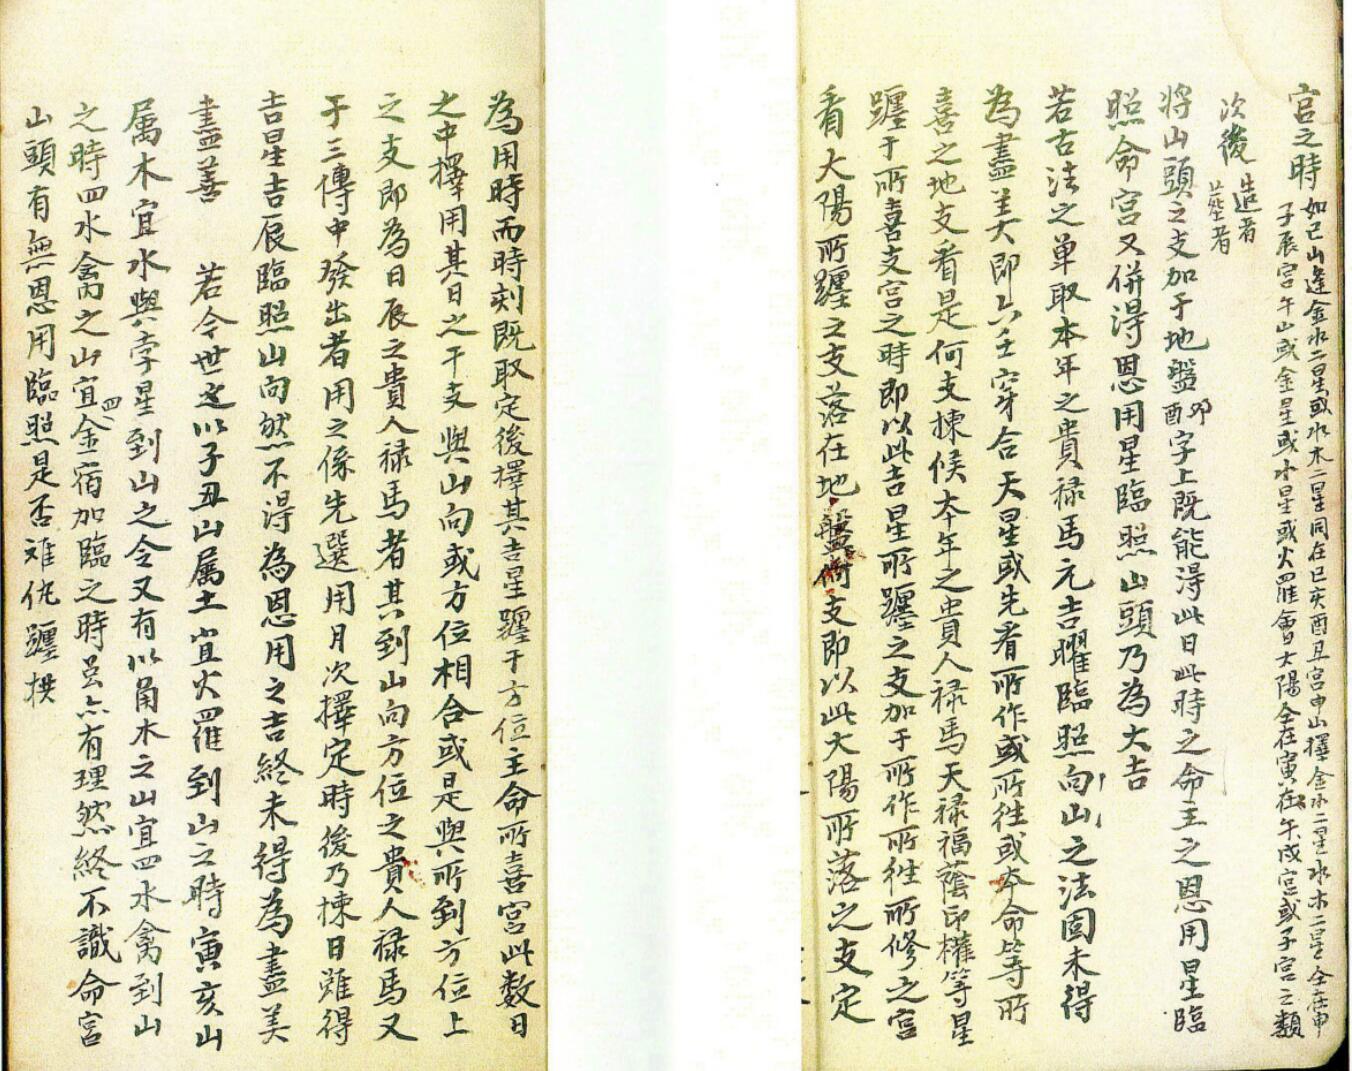 宮之時如巳山逢金水二星或水木二星同在巳亥酉丑宮申山擇金水二星水木二星全在申
子辰宮午山或金星或水星或火羅會太陽全在寅在午戌宮或子宮之類
次後造者
葬者
將山頭之支加于地盤卯酉字上既能得此日此時之命主之恩用星臨
照命宮又併得恩用星臨照山頭乃為大吉
若古法之单取本年之貴禄馬元吉曜臨照向山之法固未得
為盡美大即六壬穿合天星或先看所作或所徃或本命等所
喜之地支看是何支揀候本年之貴人禄馬天禄福蔭印權等星
躔于所喜支宮之時即以此吉星所躔之支加于所作所徃所修之宮
看大陽所躔之支落在地盤何支即以此大陽所落之支定
為用時而時刻既取定後擇其吉星躔于方位主命所喜宮此数日
之中擇用其日之干支與山向或方位相合或是與所到方位上
之支即為日辰之貴人禄馬者其到山向方位之貴人禄馬又
于三傳中發出者用之係先選用月次擇定時後乃揀日雖得
吉星吉辰臨照山向然不得為恩用之吉終未得為盡美
盡善 若今世之以子丑山属土宜火羅到山之時寅亥山
属木宜水與孛星到山之令又有以角木之山宜四水禽到山
之時四水禽之山宜四金宿加臨之時虽亦有理然終不識命宮
山頭有無恩用臨照是否难仇躔拱